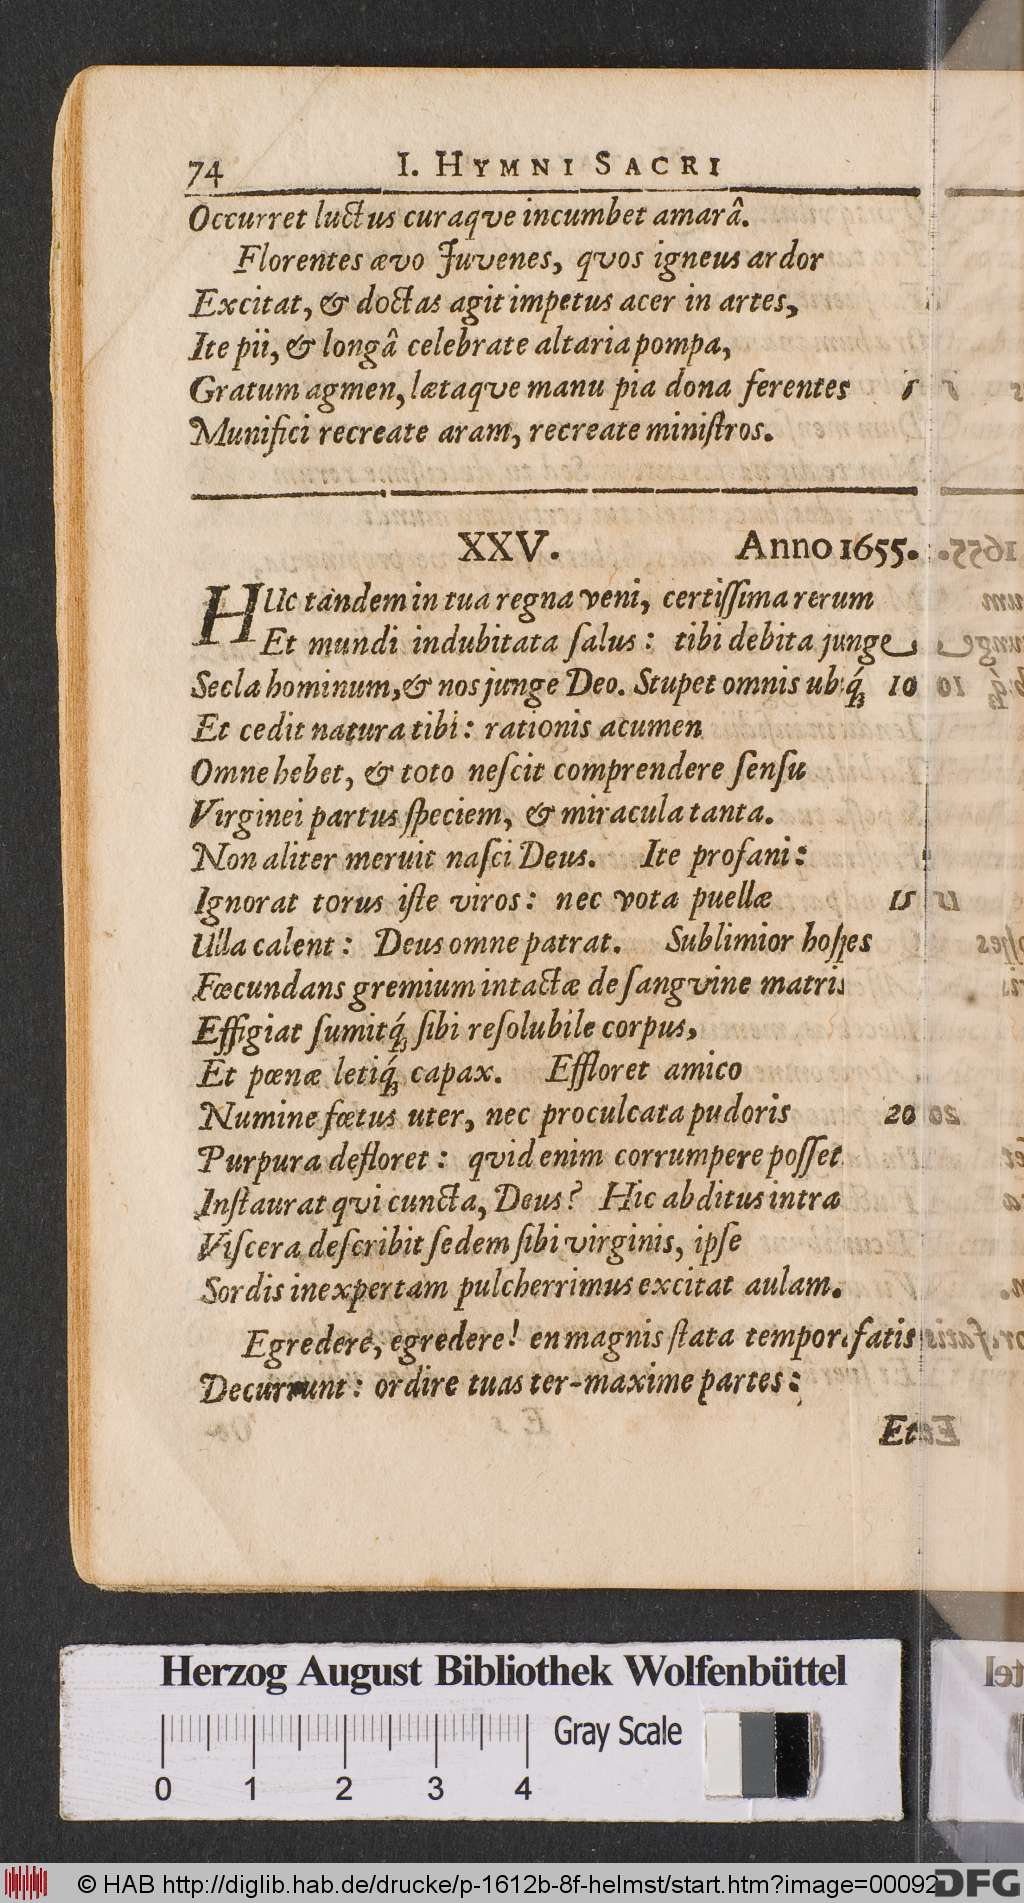 74 I. HYMNI SACRI
Occurret luctus curaqve incumbet amarâ.
Florentes ævo Juvenes, qvos igneus ardor
Excitat, & doctas agit impetus acer in artes,
Ite pii, & longâ celebrate altaria pompa,
Gratum agmen, lætaqve manu pia dona ferentes 5
Munifici recreate aram, recreate miniſtros.
XXV. Anno 1655.
HUc tandem in tua regna veni, certiſſima rerum
Et mundi indubitata ſalus: tibi debita junge
Secla hominum, & nos junge Deo. Stupet omnis ubiq́; 10
Et cedit natura tibi: rationis acumen
Omne hebet, & toto neſcit comprendere ſenſu
Virginei partus ſpeciem, & miracula tanta.
Non aliter meruit naſci Deus. Ite profani:
Ignorat torus iſte viros: nec vota puellæ 15
Ulla calent: Deus omne patrat. Sublimior hoſpes
Fœcundans gremium intactæ de ſangvine matris
Effigiat ſumitq́; ſibi reſolubile corpus,
Et pœnæ letiq́; capax. Effloret amico
Numine fœtus uter, nec proculcata pudoris 20
Purpura defloret: qvid enim corrumpere poſſet
Inſtaurat qvi cuncta, Deus? Hic abditus intra
Viſcera deſcribit ſedem ſibi virginis, ipſe
Sordis inexpertam pulcherrimus excitat aulam.
Egredere, egredere! en magnis ſtata tempora fatis
Decurrunt: ordire tuas ter-maxime partes:
Et
Herzog August Bibliothek Wolfenbüttel
Gray Scale
0 1 2 3 4
© HAB http://diglib.hab.de/drucke/p-1612b-8f-helmst/start.htm?image=00092
DFG